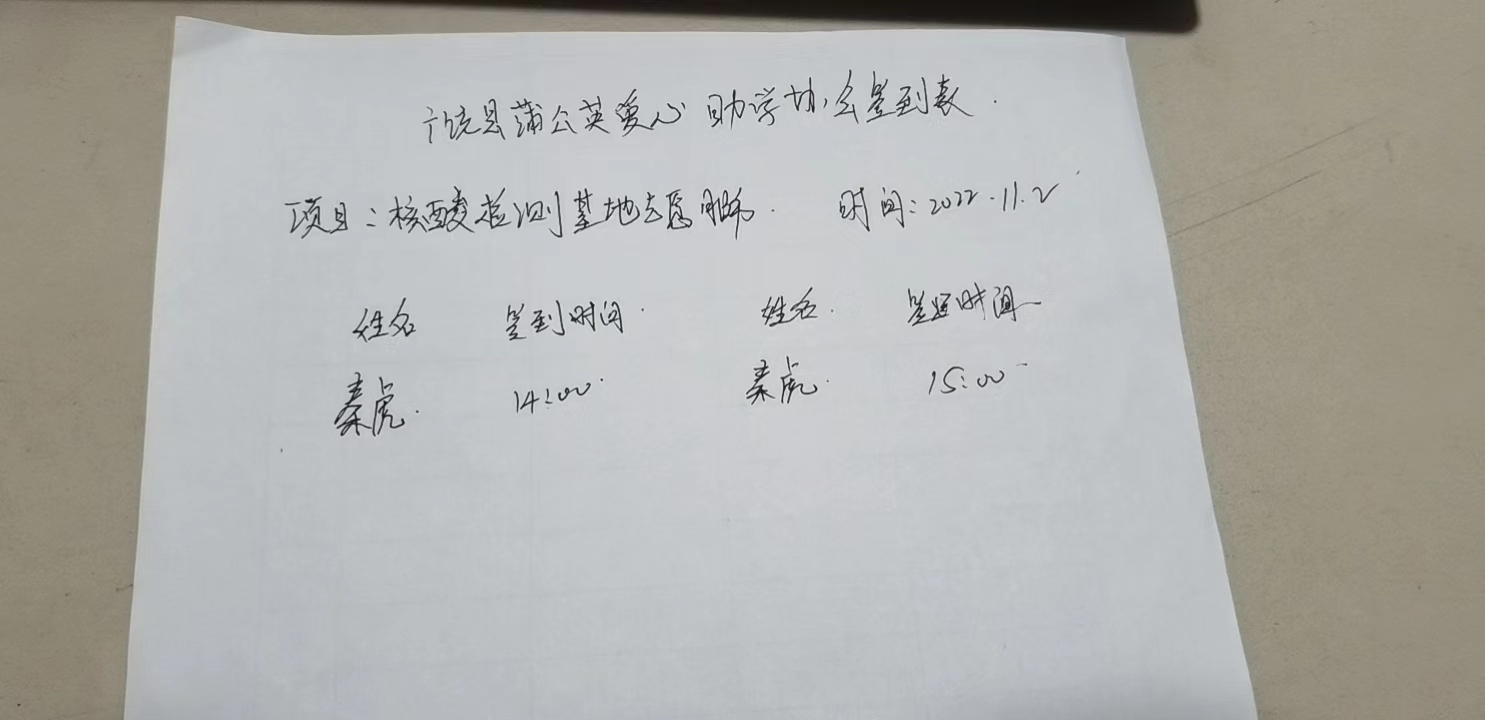 广饶县蒲公英爱心助学协会签到表.
项目:核酸检测基地志愿服务. 时间:2022.11.2
姓名 签到时间. 姓名. 签退时间
秦虎. 14:00 秦虎. 15:00